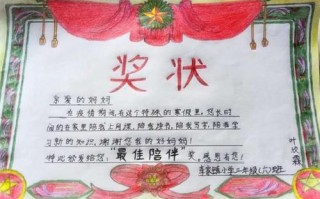 奖状
亲爱的妈妈
在疫情期间,在这个特殊的寒假里,您长时
间的在家里陪我上网课,陪我读书,陪我写字,陪我学
习新的知识,谢谢您我的好妈妈!
特此颁发给您:"最佳陪伴"奖,感恩有您!
小学二年级(六)班